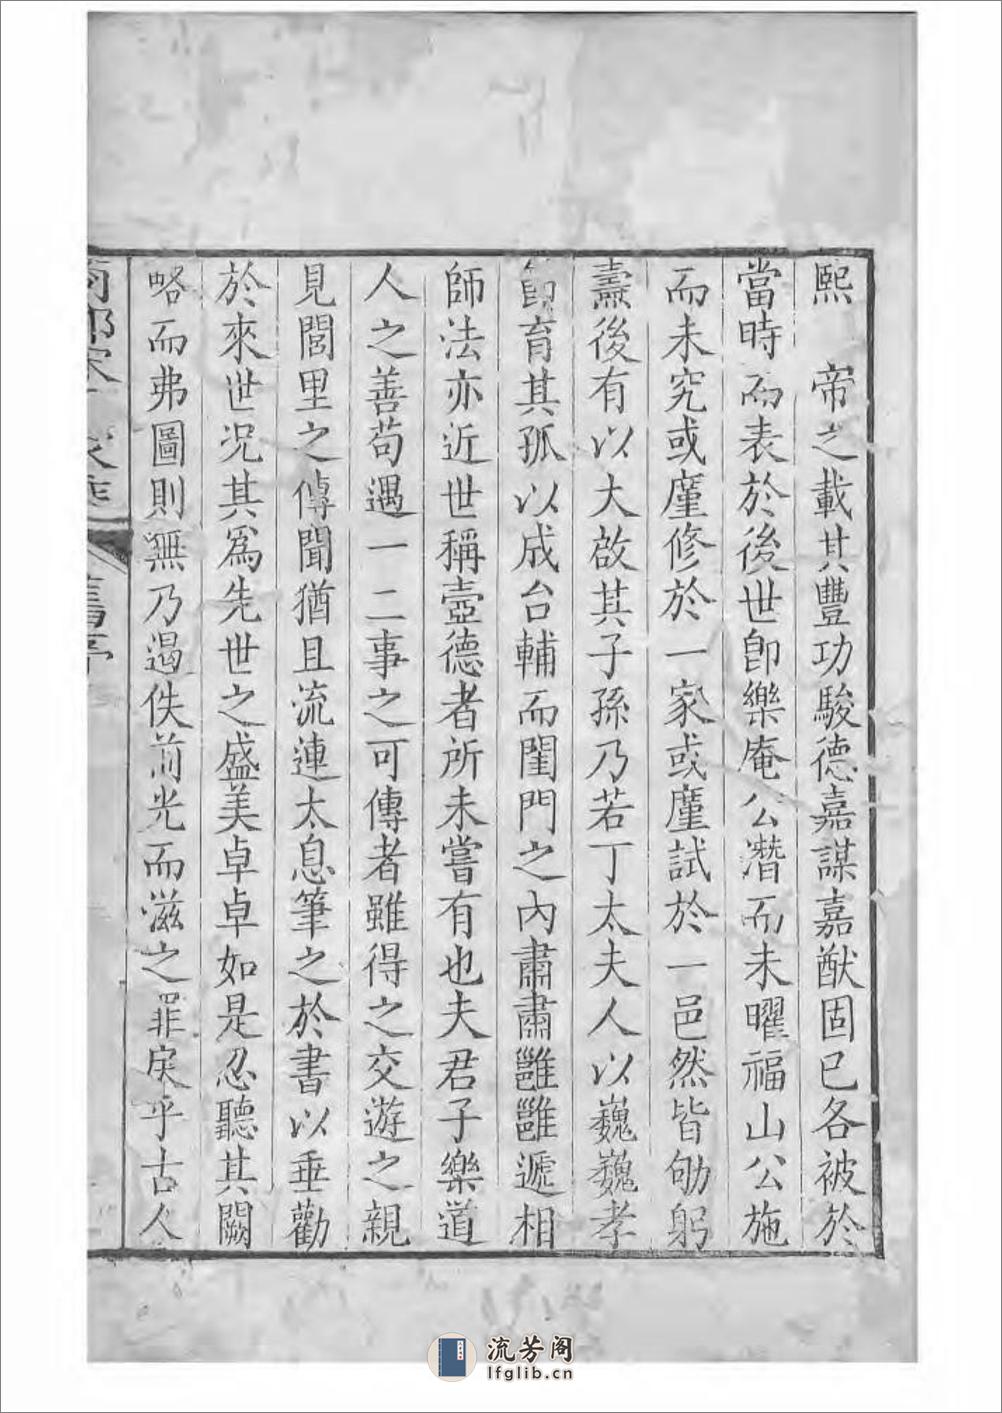 熙　帝之載其豐功駿德嘉謀嘉猷固已各被於
當時而表於後世卽樂庵公潛而未曜福山公施
而未究或廑修於一家或廑試於一邑然皆劬躬
燾後有以大啟其子孫乃若丁太夫人以巍巍孝
節育其孤以成台輔而閨門之內肅肅雝雝遞相
師法亦近世稱壼德者所未嘗有也夫君子樂道
人之善苟遇一二事之可傳者雖得之交遊之親
見閭里之傳聞猶且流連太息筆之於書以垂勸
於來世况其爲先世之盛美卓卓如是忍聽其闕
略而弗圖則無乃遏佚前光而滋之罪戾乎古人
舊序
流芳阁
lfglib.cn